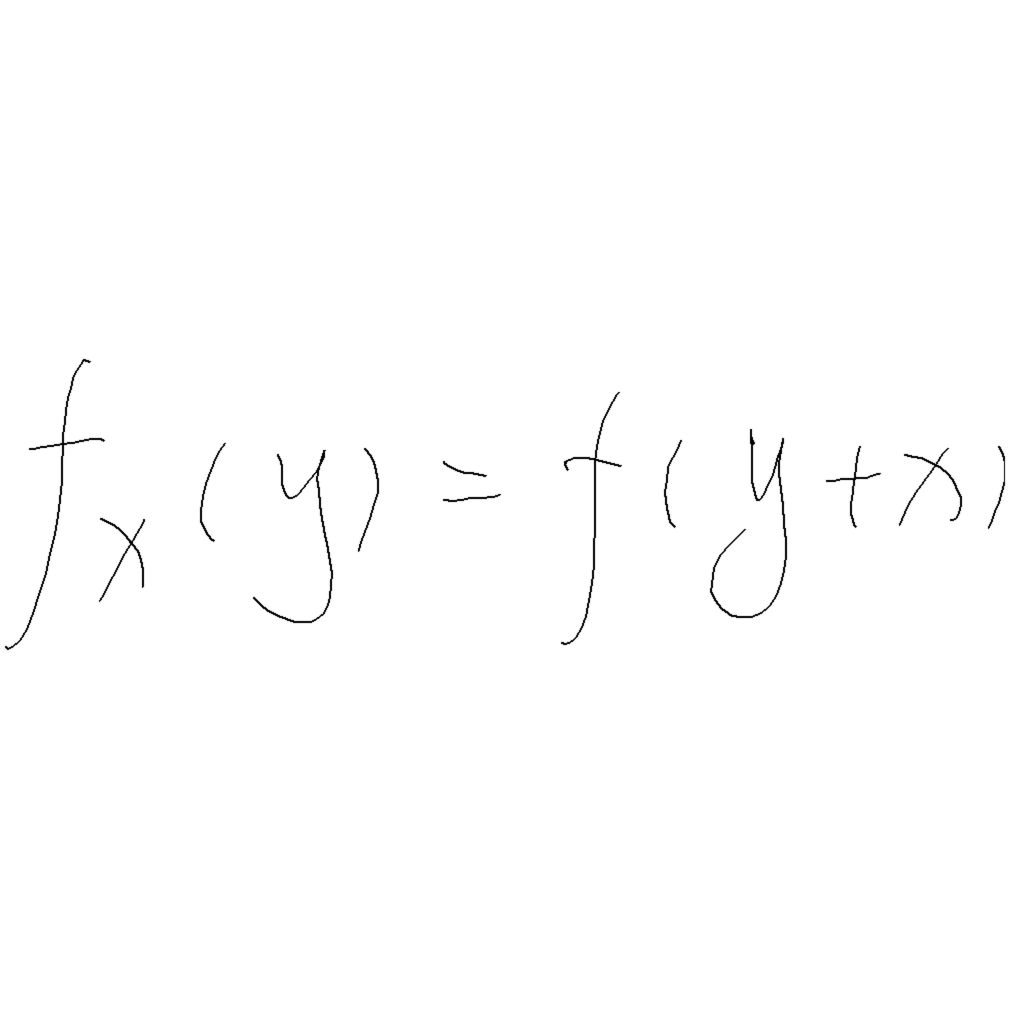 f_x(y) = f(y+x)